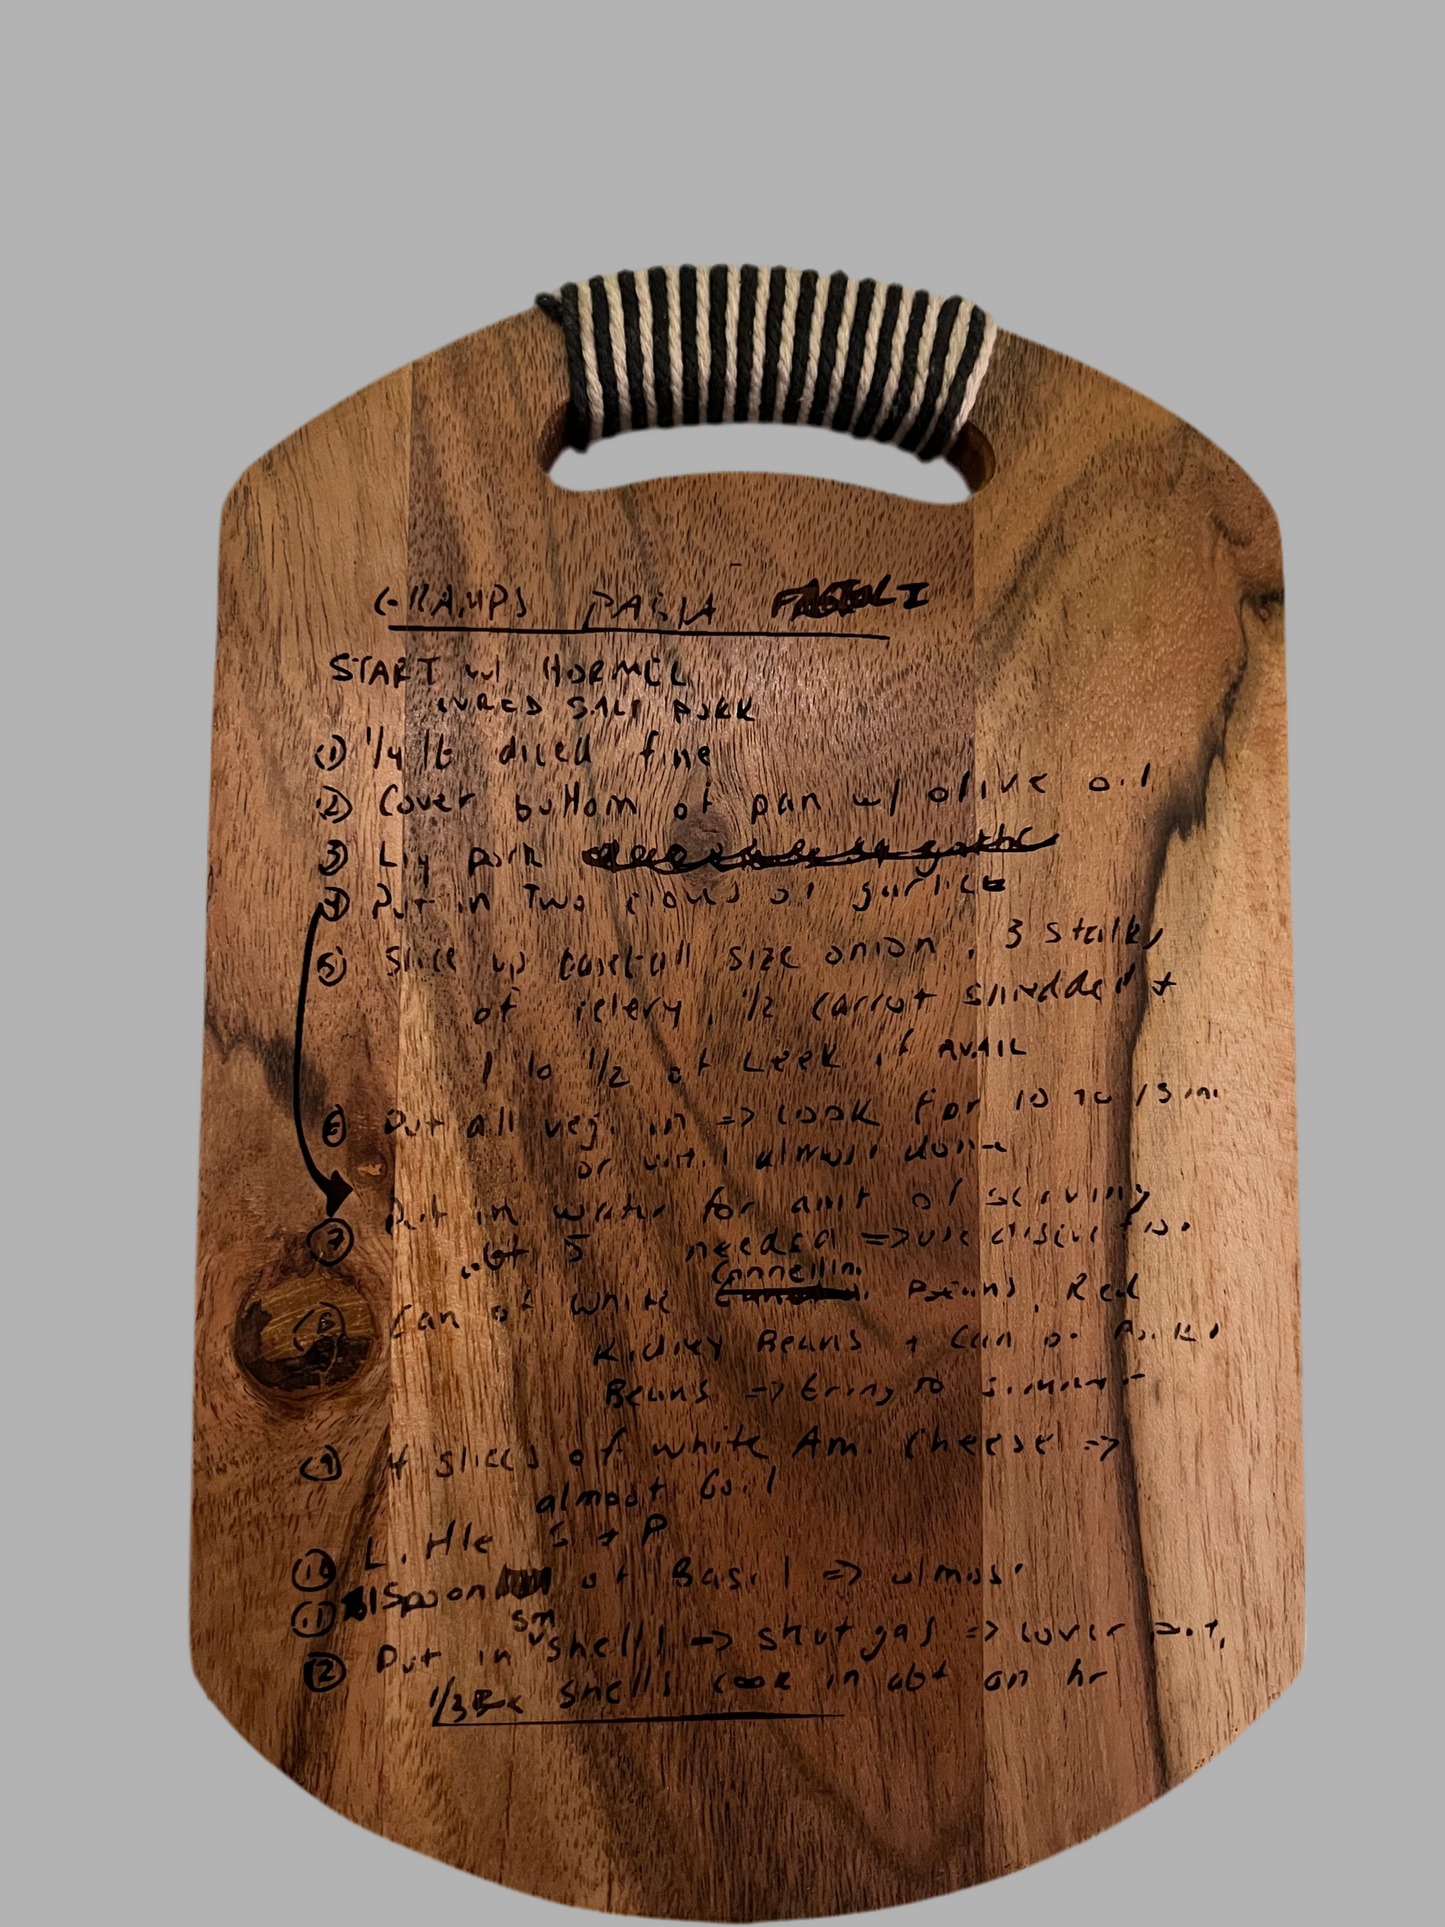 GRAMPS PASTA FAGIOLI
START w/ HORMEL
CURED SALT PORK
① 1/4 lb diced fine
② Cover bottom of pan w/ olive oil
③ pork
④ Put in Two cloves of garlic
⑤ Slice up baseball size onion, 3 stalks
of celery, 1/2 carrot shredded +
1 to 1/2 of Leek if AVAIL
⑥ Put all veg. in => cook for 10 to 15 m.
or until almost done
⑦ Put in water for amt of serving
abt 5 needed => use
⑧ Can of white Cannellin. Beans, Red
Kidney Beans + Can of
Beans => bring to simmer
⑨ 4 slices of white Am. Cheese =>
almost boil
⑩ Little S + P
⑪ 1 Spoon of Basil => almost
⑫ Put in sm shells => shut gas => cover
1/3 shells cook in abt an hr